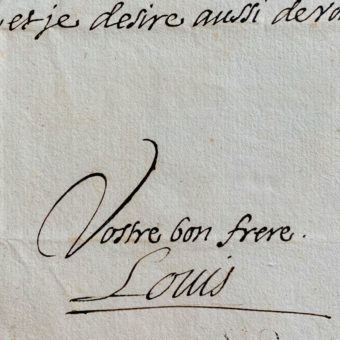 et je desire aussi de vo
Vostre bon frere.
Louis